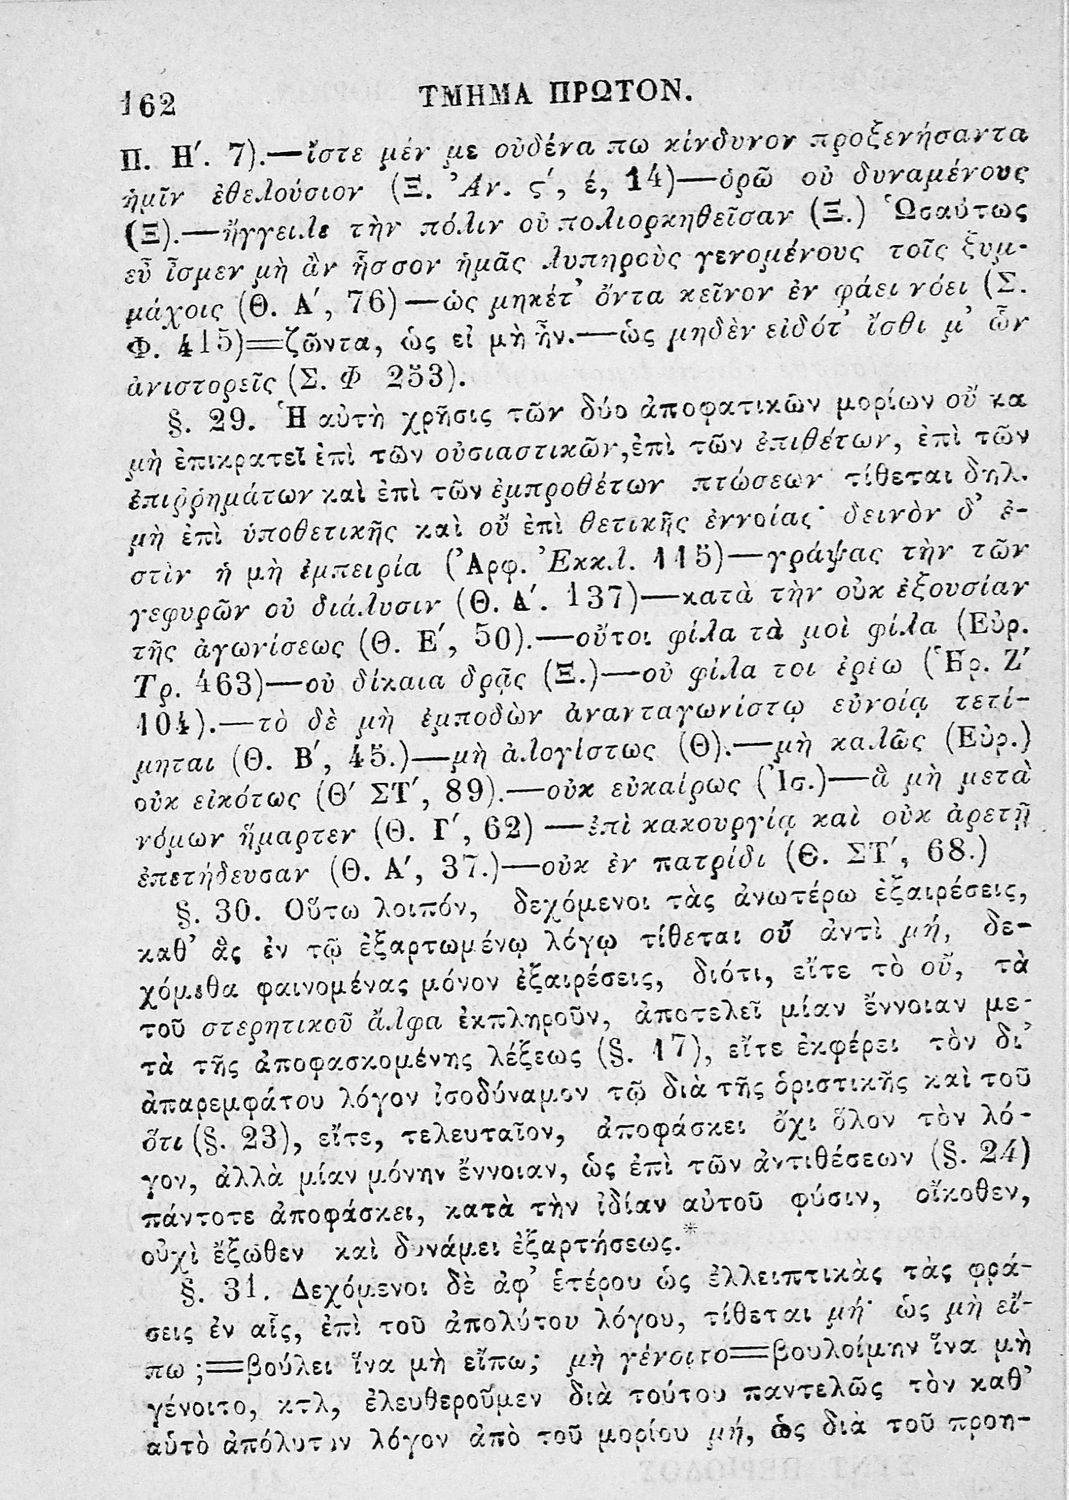 162 ΤΜΗΜΑ ΠΡΩΤΟΝ.
Π. Η΄. 7).—ἴστε μέν με οὐδένα πω κίνδυνον προξενήσαντα
ἡμῖν ἐθελούσιον (Ξ. Ἀν. ς΄, έ, 14)—ὁρῶ οὐ δυναμένους
(Ξ).—ἤγγειλε τὴν πόλιν οὐ πολιορκηθεῖσαν (Ξ.) Ὡσαύτως
εὖ ἴσμεν μὴ ἂν ἧσσον ἡμᾶς λυπηροὺς γενομένους τοῖς ξυμ-
μάχοις (Θ. Α΄, 76)—ὡς μηκέτ’ ὄντα κεῖνον ἐν φάει νόει (Σ.
Φ. 415)=ζῶντα, ὡς εἰ μὴ ἦν.—ὡς μηδὲν εἰδότ’ ἴσθι μ’ ὧν
ἀνιστορεῖς (Σ. Φ 253).
§. 29. Ἡ αὐτὴ χρῆσις τῶν δύο ἀποφατικῶν μορίων οὔ κα
μὴ ἐπικρατεῖ ἐπὶ τῶν οὐσιαστικῶν, ἐπὶ τῶν ἐπιθέτων, ἐπὶ τῶν
ἐπιῤῥημάτων καὶ ἐπὶ τῶν ἐμπροθέτων πτώσεων τίθεται δηλ.
μὴ ἐπὶ ὑποθετικῆς καὶ οὔ ἐπὶ θετικῆς ἐννοίας· δεινὸν δ’ ἐ-
στὶν ἡ μὴ ἐμπειρία (Ἀρφ. Ἐκκλ. 115)—γράψας τὴν τῶν
γεφυρῶν οὐ διάλυσιν (Θ. Α΄. 137)—κατὰ τὴν οὐκ ἐξουσίαν
τῆς ἀγωνίσεως (Θ. Ε΄, 50).—οὔτοι φίλα τὰ μοὶ φίλα (Εὐρ.
Τρ. 463)—οὐ δίκαια δρᾷς (Ξ.)—οὐ φίλα τοι ἐρέω (Ἡρ. Ζ΄
104).—τὸ δὲ μὴ ἐμποδὼν ἀνανταγωνίστῳ εὐνοίᾳ τετί-
μηται (Θ. Β΄, 45.)—μὴ ἀλογίστως (Θ).—μὴ καλῶς (Εὐρ.)
οὐκ εἰκότως (Θ΄ ΣΤ΄, 89).—οὐκ εὐκαίρως (Ἰσ.)—ἃ μὴ μετὰ
νόμων ἥμαρτεν (Θ. Γ΄, 62)—ἐπὶ κακουργίᾳ καὶ οὐκ ἀρετῇ
ἐπετήδευσαν (Θ. Α΄, 37.)—οὐκ ἐν πατρίδι (Θ. ΣΤ΄, 68.)
§. 30. Οὕτω λοιπόν, δεχόμενοι τὰς ἀνωτέρω ἐξαιρέσεις,
καθ’ ἃς ἐν τῷ ἐξαρτωμένῳ λόγῳ τίθεται οὔ ἀντὶ μή, δε-
χόμεθα φαινομένας μόνον ἐξαιρέσεις, διότι, εἴτε τὸ οὔ, τὰ
τοῦ στερητικοῦ ἄλφα ἐκπληροῦν, ἀποτελεῖ μίαν ἔννοιαν με-
τὰ τῆς ἀποφασκομένης λέξεως (§. 17), εἴτε ἐκφέρει τὸν δι’
ἀπαρεμφάτου λόγον ἰσοδύναμον τῷ διὰ τῆς ὁριστικῆς καὶ τοῦ
ὅτι (§. 23), εἴτε, τελευταῖον, ἀποφάσκει ὄχι ὅλον τὸν λό-
γον, ἀλλὰ μίαν μόνην ἔννοιαν, ὡς ἐπὶ τῶν ἀντιθέσεων (§. 24)
πάντοτε ἀποφάσκει, κατὰ τὴν ἰδίαν αὐτοῦ φύσιν, οἴκοθεν,
οὐχὶ ἔξωθεν καὶ δυνάμει ἐξαρτήσεως.*
§. 31. Δεχόμενοι δὲ ἀφ’ ἑτέρου ὡς ἐλλειπτικὰς τὰς φρά-
σεις ἐν αἷς, ἐπὶ τοῦ ἀπολύτου λόγου, τίθεται μή· ὡς μὴ εἴ-
πω ;=βούλει ἵνα μὴ εἴπω; μὴ γένοιτο=βουλοίμην ἵνα μὴ
γένοιτο, κτλ, ἐλευθεροῦμεν διὰ τούτου παντελῶς τὸν καθ’
αὑτὸ ἀπόλυτον λόγον ἀπὸ τοῦ μορίου μή, ὡς διὰ τοῦ προη-